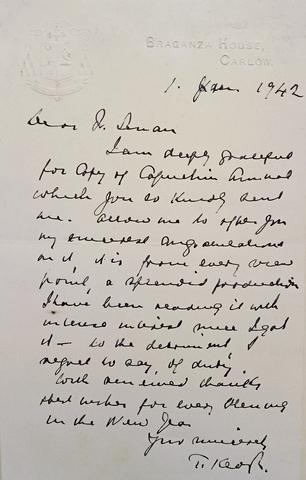 BRAGANZA HOUSE,
CARLOW.
1. Jan 1942
Dear Fr. Senan
I am deeply grateful
for copy of Capuchin Annual
which you so kindly sent
me. Allow me to offer you
my sincerest congratulations
on it. It is from every view
point, a splendid production
I have been reading it with
intense interest since I got
it – to the detriment, I
regret to say, of duty.
With renewed thanks
& best wishes for every blessing
in the New Year
Your sincerely
T. Keogh.